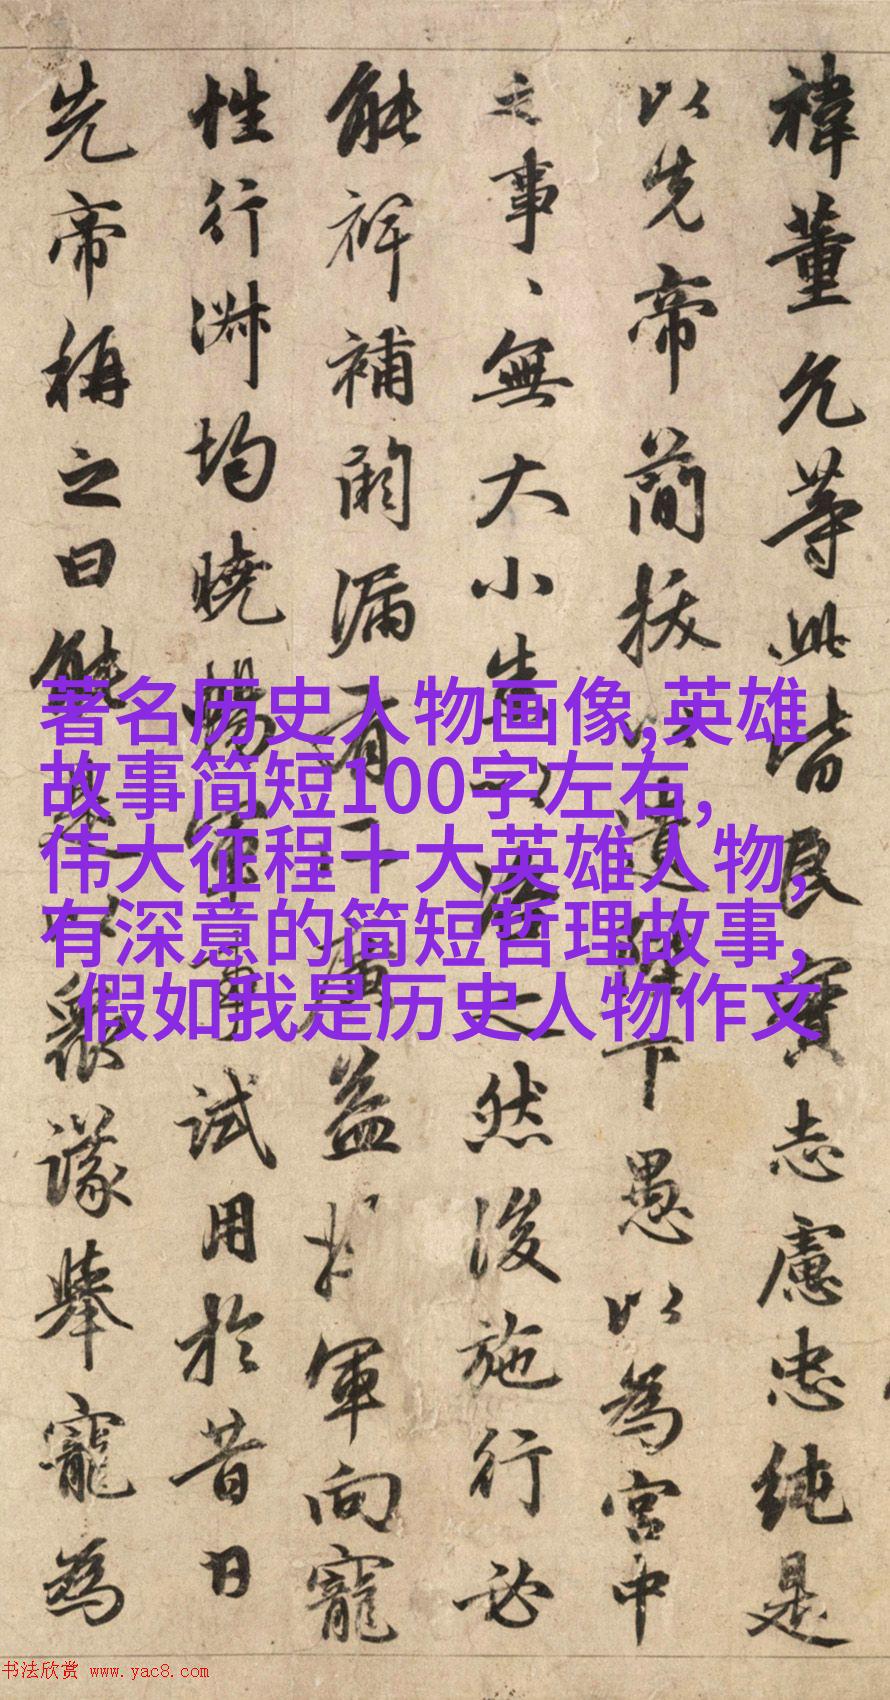 禕董允等此皆良實志慮忠純是
以先帝簡拔以遺陛下愚以為宮中
之事、無大小悉以咨之然後施行必
能裨補闕漏有所廣益將軍向寵
性行淑均曉暢軍事試用於昔日
先帝稱之曰能是以衆議舉寵為
著名历史人物画像,英雄
故事简短100字左右,
伟大征程十大英雄人物,
有深意的简短哲理故事,
假如我是历史人物作文
书法欣赏 www.yac8.com